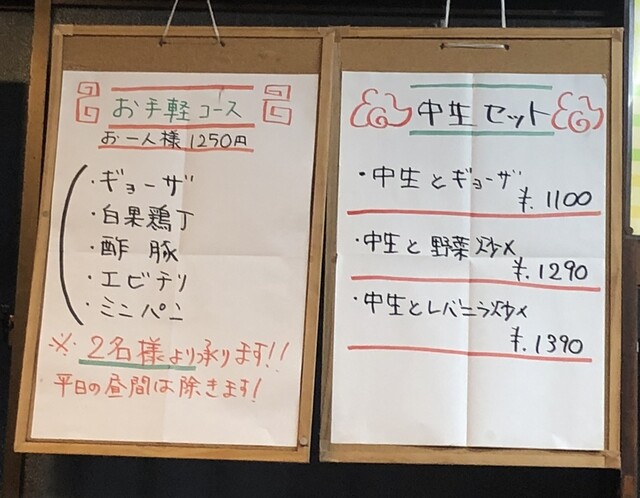 お手軽コース
お一人様1250円
・ギョーザ
・白果鶏丁
・酢豚
・エビチリ
・ミニパン
※2名様より承ります!!
平日の昼間は除きます!
中生セット
・中生とギョーザ
¥.1100
・中生と野菜炒メ
¥.1290
・中生とレバニラ炒メ
¥.1390